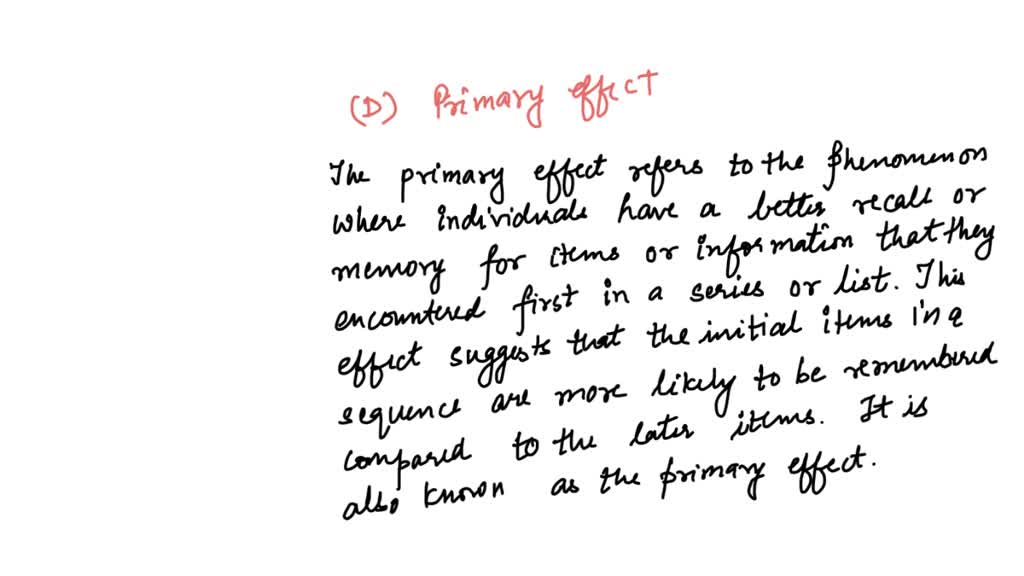 (D) Primary effect
The primary effect refers to the phenomenon
where individuals have a better recall or
memory for items or information that they
encountered first in a series or list. This
effect suggests that the initial items in a
sequence are more likely to be remembered
compared to the later items. It is
also known as the primary effect.